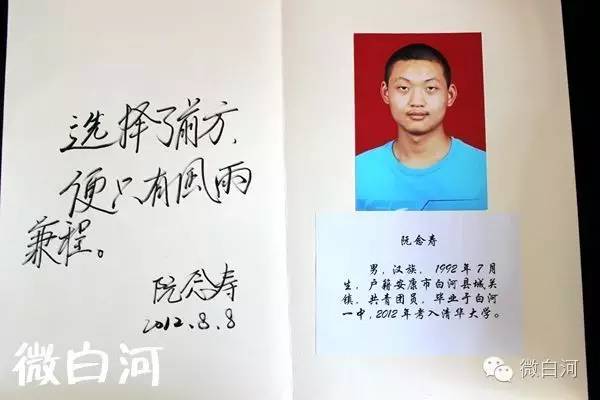 选择了前方，
便只有風雨
兼程。
阮念寿
2012.8.8
阮念寿
男，汉族， 1992年7月
生，户籍安康市白河县城关
镇，共青团员，毕业于白河
一中，2012年考入清华大学。
微白河
微白河